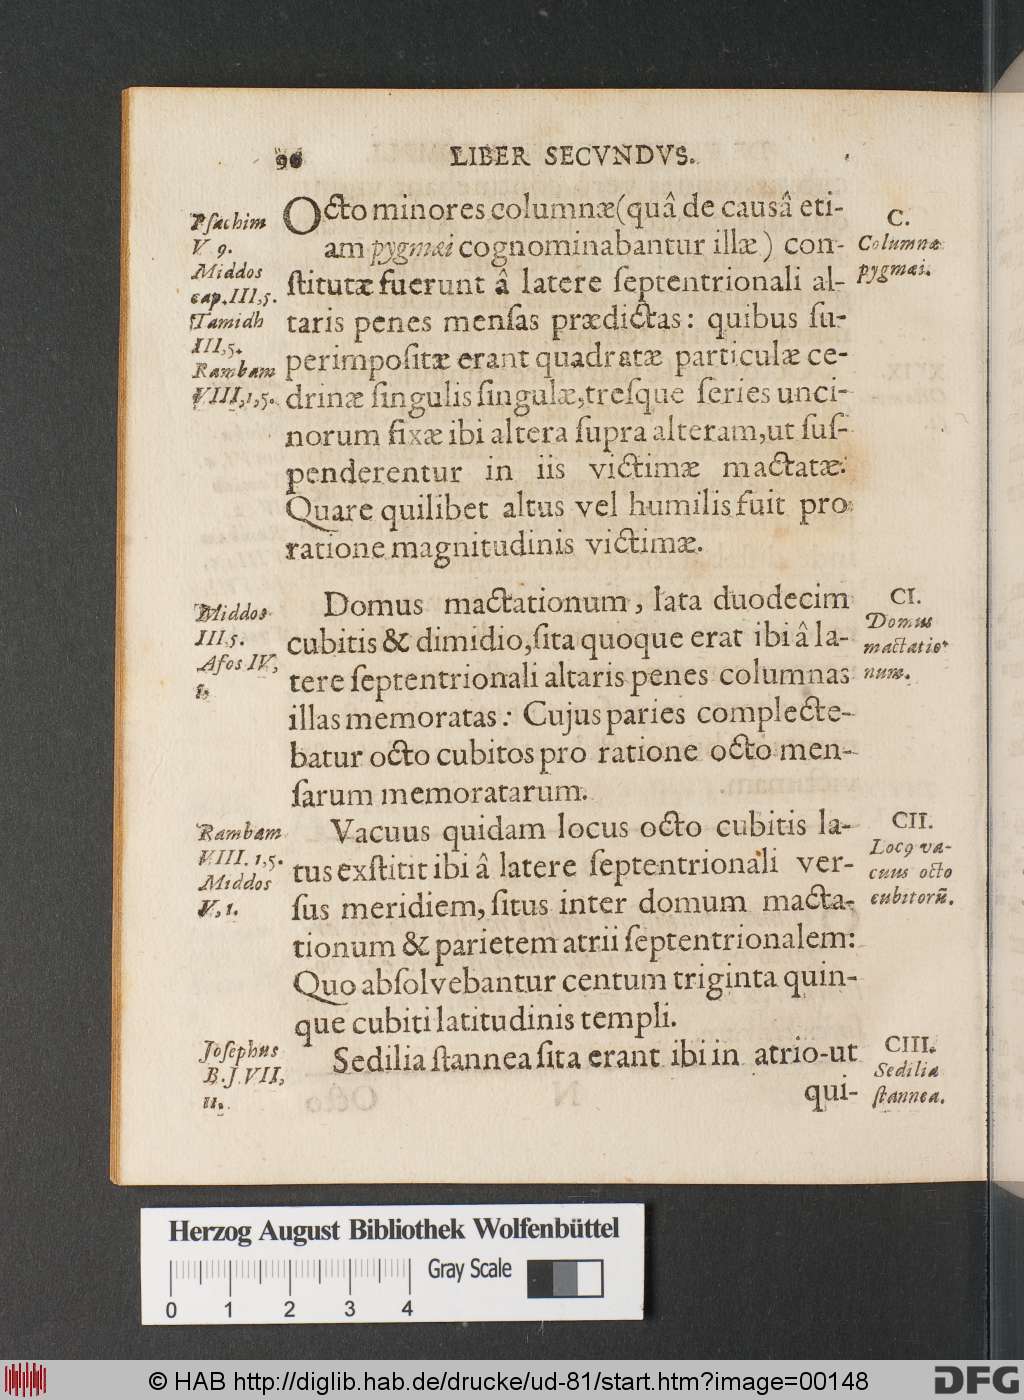 96 LIBER SECVNDVS.
Pſachim
V 9.
Middos
cap. III,5.
Tamidh
III,5.
Rambam
VIII,1,5.
Octo minores columnæ (quâ de causâ eti-
am pygmæi cognominabantur illæ) con-
ſtitutæ fuerunt â latere ſeptentrionali al-
taris penes menſas prædictas: quibus ſu-
perimpoſitæ erant quadratæ particulæ ce-
drinæ ſingulis ſingulæ, treſque ſeries unci-
norum fixæ ibi altera ſupra alteram, ut ſuſ-
penderentur in iis victimæ mactatæ.
Quare quilibet altus vel humilis fuit pro
ratione magnitudinis victimæ.
C.
Columnæ
pygmæi.
Middos
III,5.
Aſos IV,
Domus mactationum, lata duodecim
cubitis & dimidio, ſita quoque erat ibi â la-
tere ſeptentrionali altaris penes columnas
illas memoratas: Cujus paries complecte-
batur octo cubitos pro ratione octo men-
ſarum memoratarum.
CI.
Domus
mactatio-
num.
Rambam
VIII. 1,5.
Middos
V, 1.
Vacuus quidam locus octo cubitis la-
tus exſtitit ibi â latere ſeptentrionali ver-
ſus meridiem, ſitus inter domum macta-
tionum & parietem atrii ſeptentrionalem:
Quo abſolvebantur centum triginta quin-
que cubiti latitudinis templi.
CII.
Locꝰ va-
cuus octo
cubitorũ.
Joſephus
B. J. VII,
11.
Sedilia ſtannea ſita erant ibi in atrio-ut
qui-
CIII.
Sedilia
ſtannea.
Herzog August Bibliothek Wolfenbüttel
Gray Scale
0 1 2 3 4
© HAB http://diglib.hab.de/drucke/ud-81/start.htm?image=00148
DFG